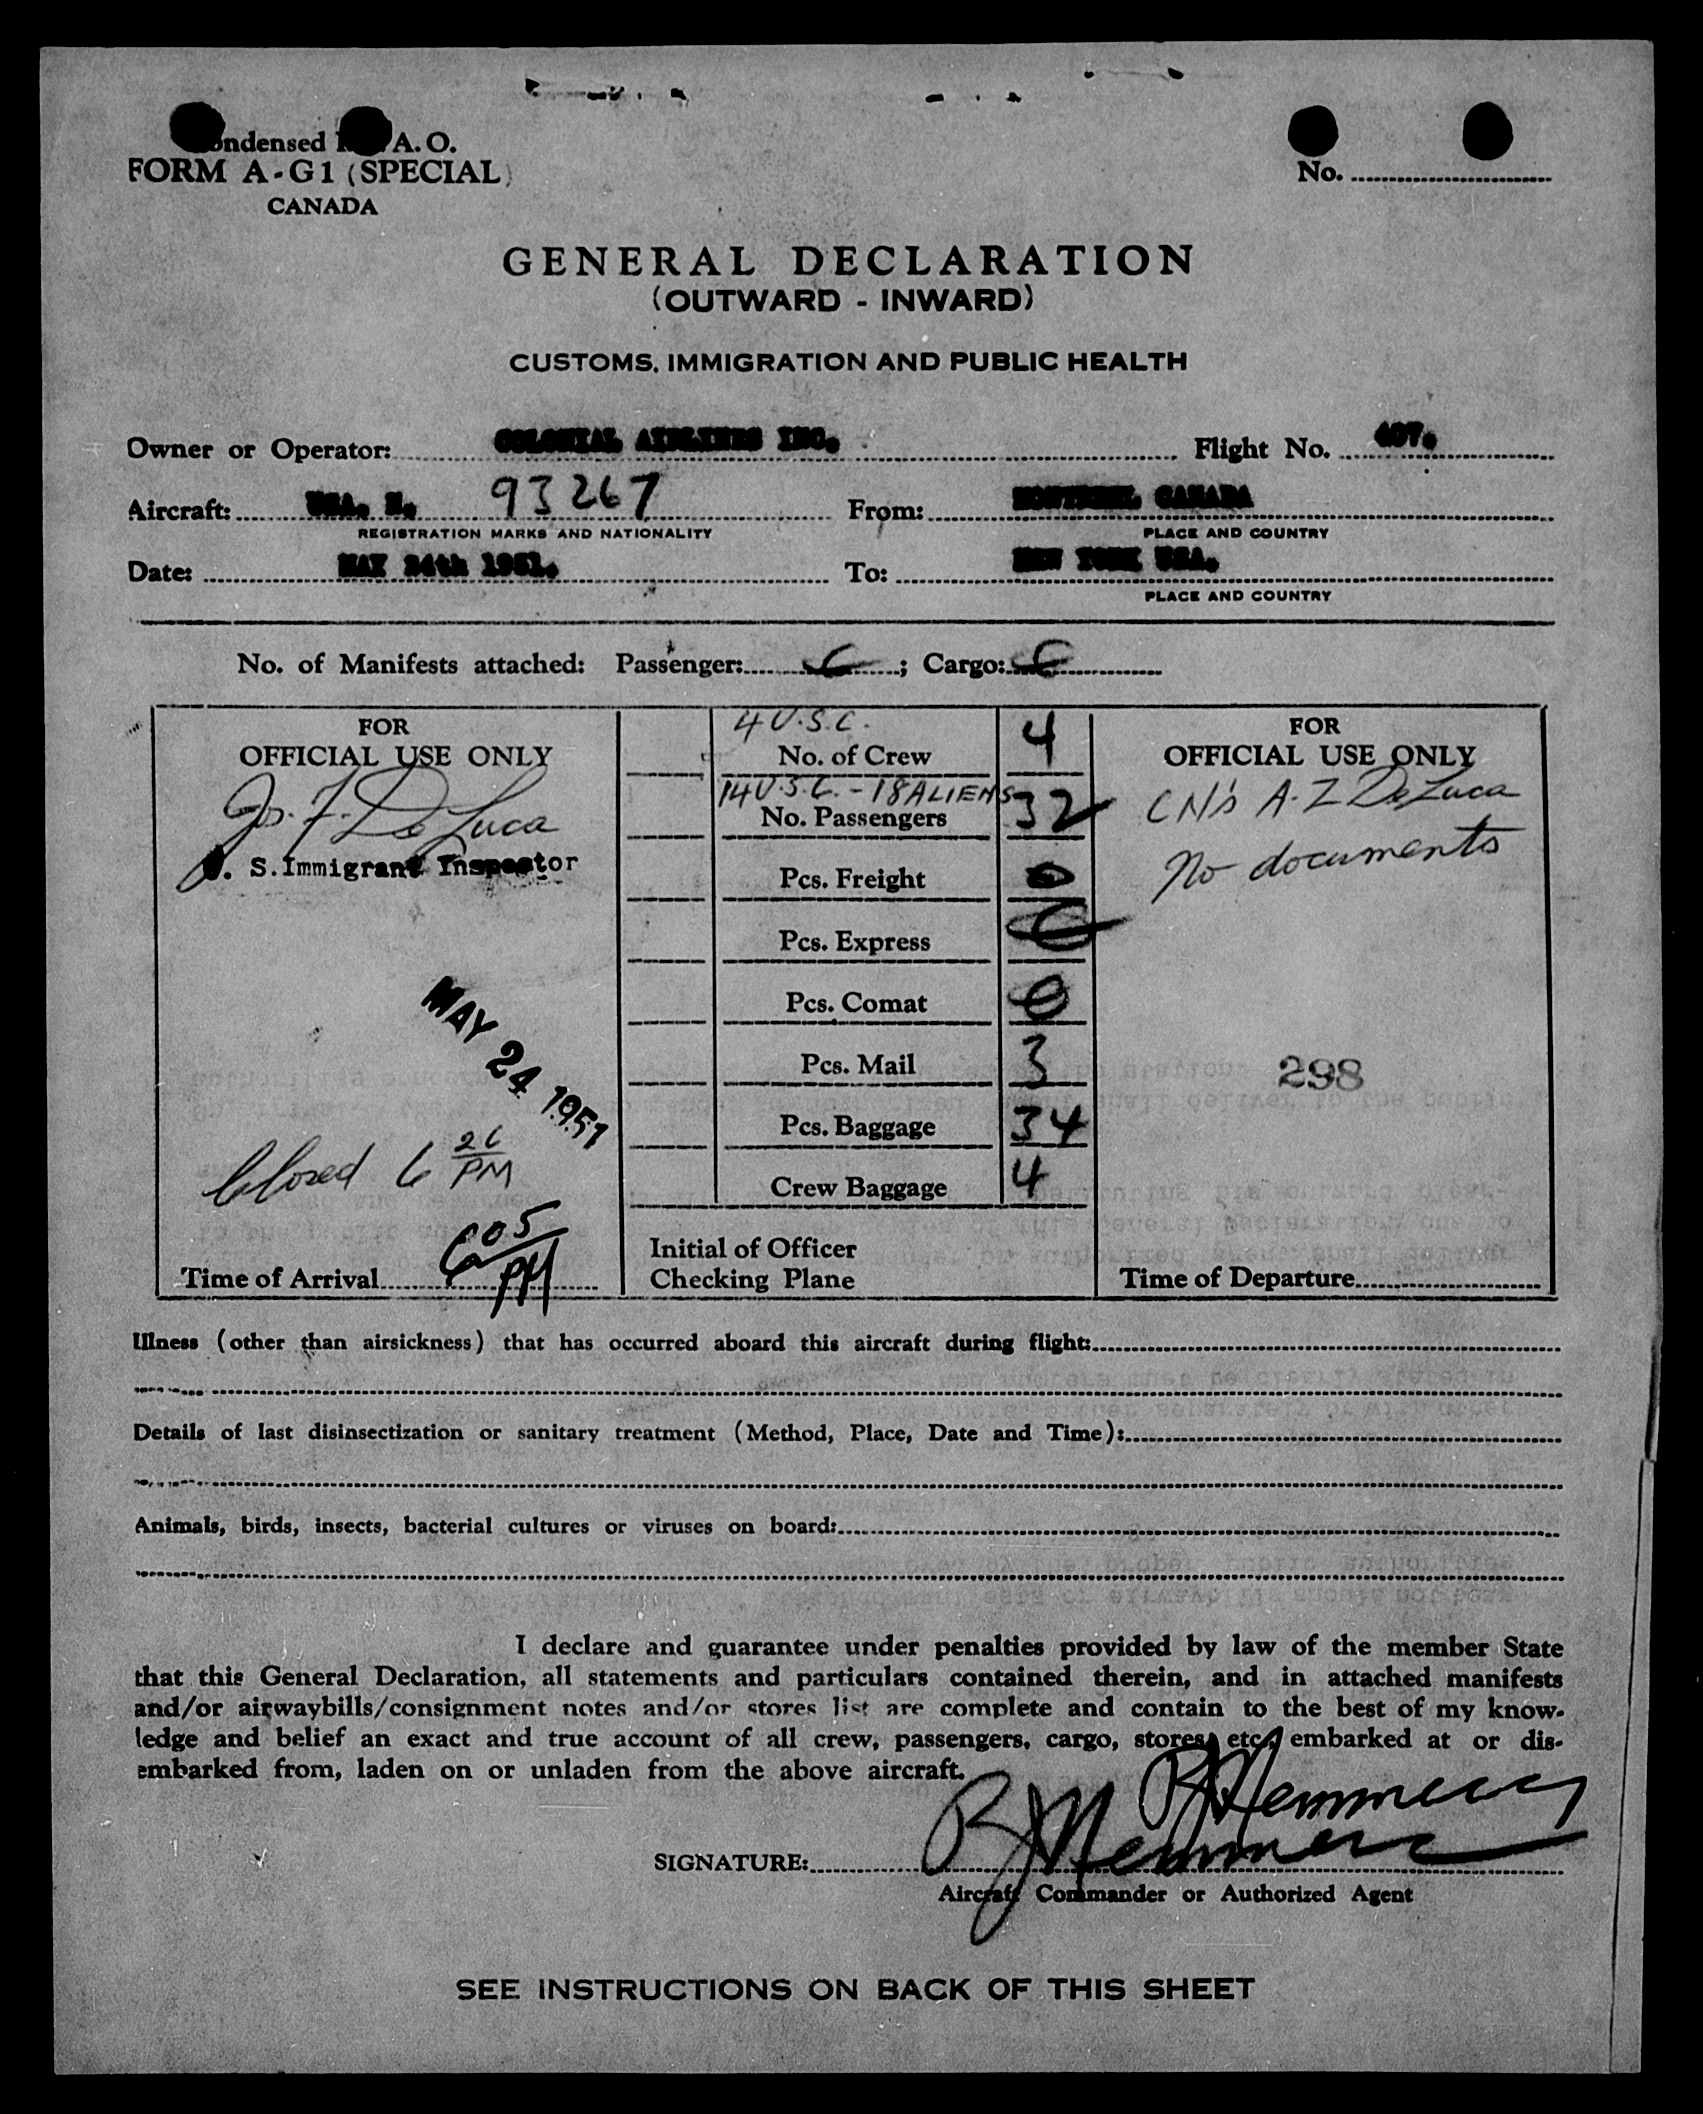 Condensed A. O.
FORM A-G1 (SPECIAL)
CANADA
No.
GENERAL DECLARATION
(OUTWARD - INWARD)
CUSTOMS, IMMIGRATION AND PUBLIC HEALTH
Owner or Operator: COLONIAL AIRLINES INC. Flight No. 407.
Aircraft: USA. N. 93267 From: MONTREAL CANADA
REGISTRATION MARKS AND NATIONALITY PLACE AND COUNTRY
Date: MAY 24th 1951. To: NEW YORK USA.
PLACE AND COUNTRY
No. of Manifests attached: Passenger: ; Cargo:
FOR
OFFICIAL USE ONLY
Jos. F. De Luca
U. S. Immigrant Inspector
MAY 24 1951
Closed 6 26 PM
Time of Arrival 6 05 PM
4 U.S.C.
No. of Crew 4
14 U.S.C. - 18 ALIENS
No. Passengers 32
Pcs. Freight 0
Pcs. Express
Pcs. Comat 0
Pcs. Mail 3
Pcs. Baggage 34
Crew Baggage 4
Initial of Officer
Checking Plane
FOR
OFFICIAL USE ONLY
De Luca
No documents
298
Time of Departure
Illness (other than airsickness) that has occurred aboard this aircraft during flight:
Details of last disinsectization or sanitary treatment (Method, Place, Date and Time):
Animals, birds, insects, bacterial cultures or viruses on board:
I declare and guarantee under penalties provided by law of the member State
that this General Declaration, all statements and particulars contained therein, and in attached manifests
and/or airwaybills/consignment notes and/or stores list are complete and contain to the best of my know-
ledge and belief an exact and true account of all crew, passengers, cargo, stores, etc., embarked at or dis-
embarked from, laden on or unladen from the above aircraft.
SIGNATURE:
Aircraft Commander or Authorized Agent
SEE INSTRUCTIONS ON BACK OF THIS SHEET